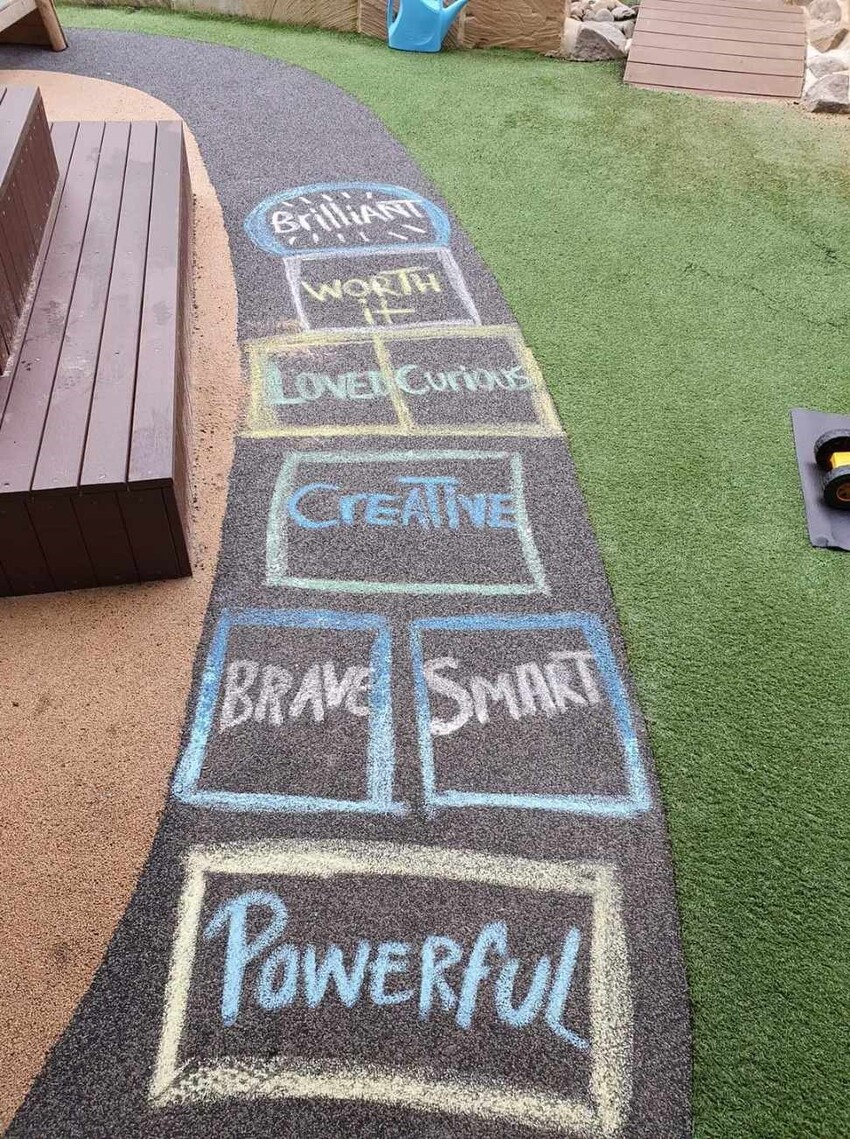 BrilliANT
WORTH
it
LOVED Curious
CreATIVE
BRAVE SMART
POWERfUL